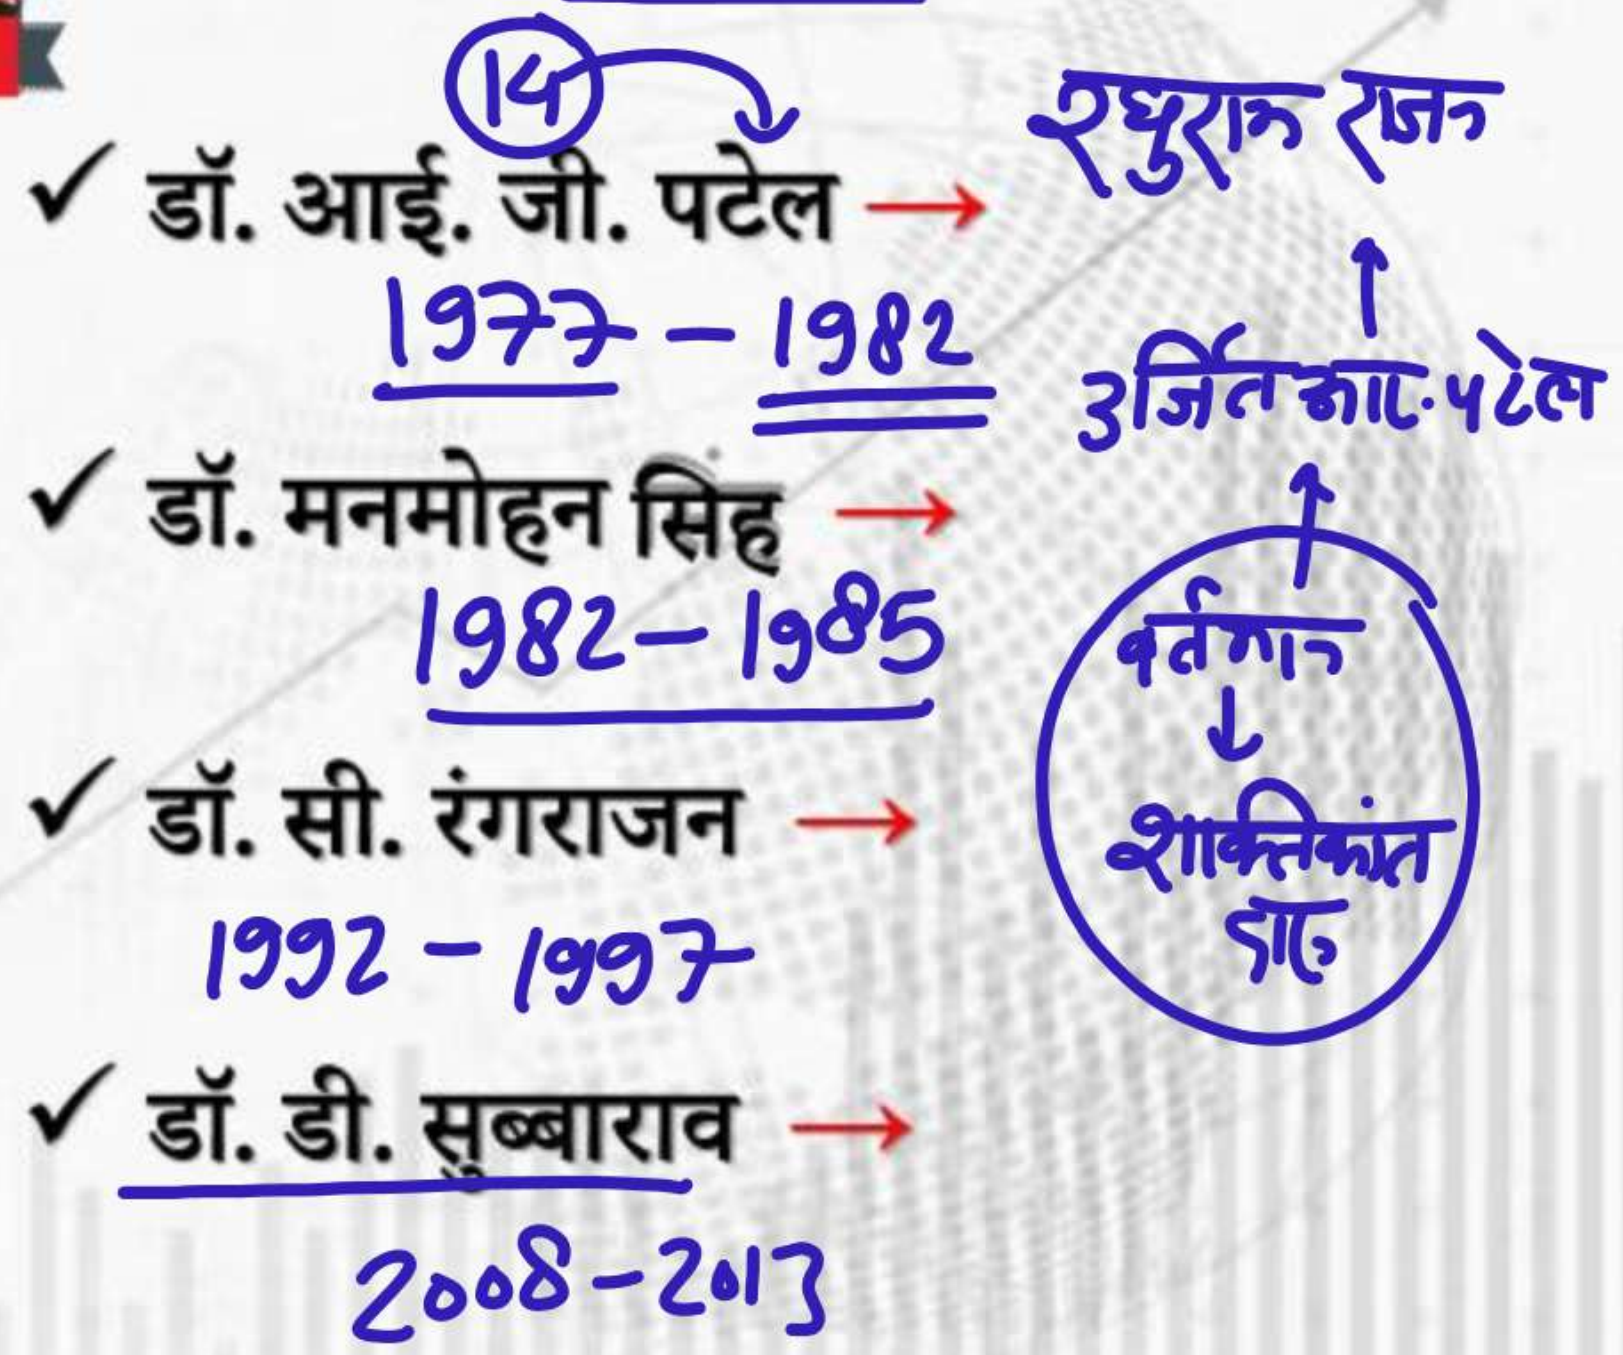 14
✓ डॉ. आई. जी. पटेल →
1977 – 1982
✓ डॉ. मनमोहन सिंह →
1982 – 1985
✓ डॉ. सी. रंगराजन →
1992 – 1997
✓ डॉ. डी. सुब्बाराव →
2008 – 2013
रघुराम राजन
↑
उर्जित आर. पटेल
↑
वर्तमान
↓
शक्तिकांत
दास